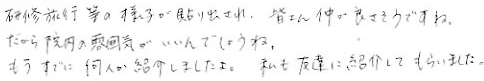 研修旅行等の様子が貼り出され、皆さん仲が良さそうですね。
だから院内の雰囲気がいいんでしょうね。
もうすでに何人か紹介しましたよ。私も友達に紹介してもらいました。